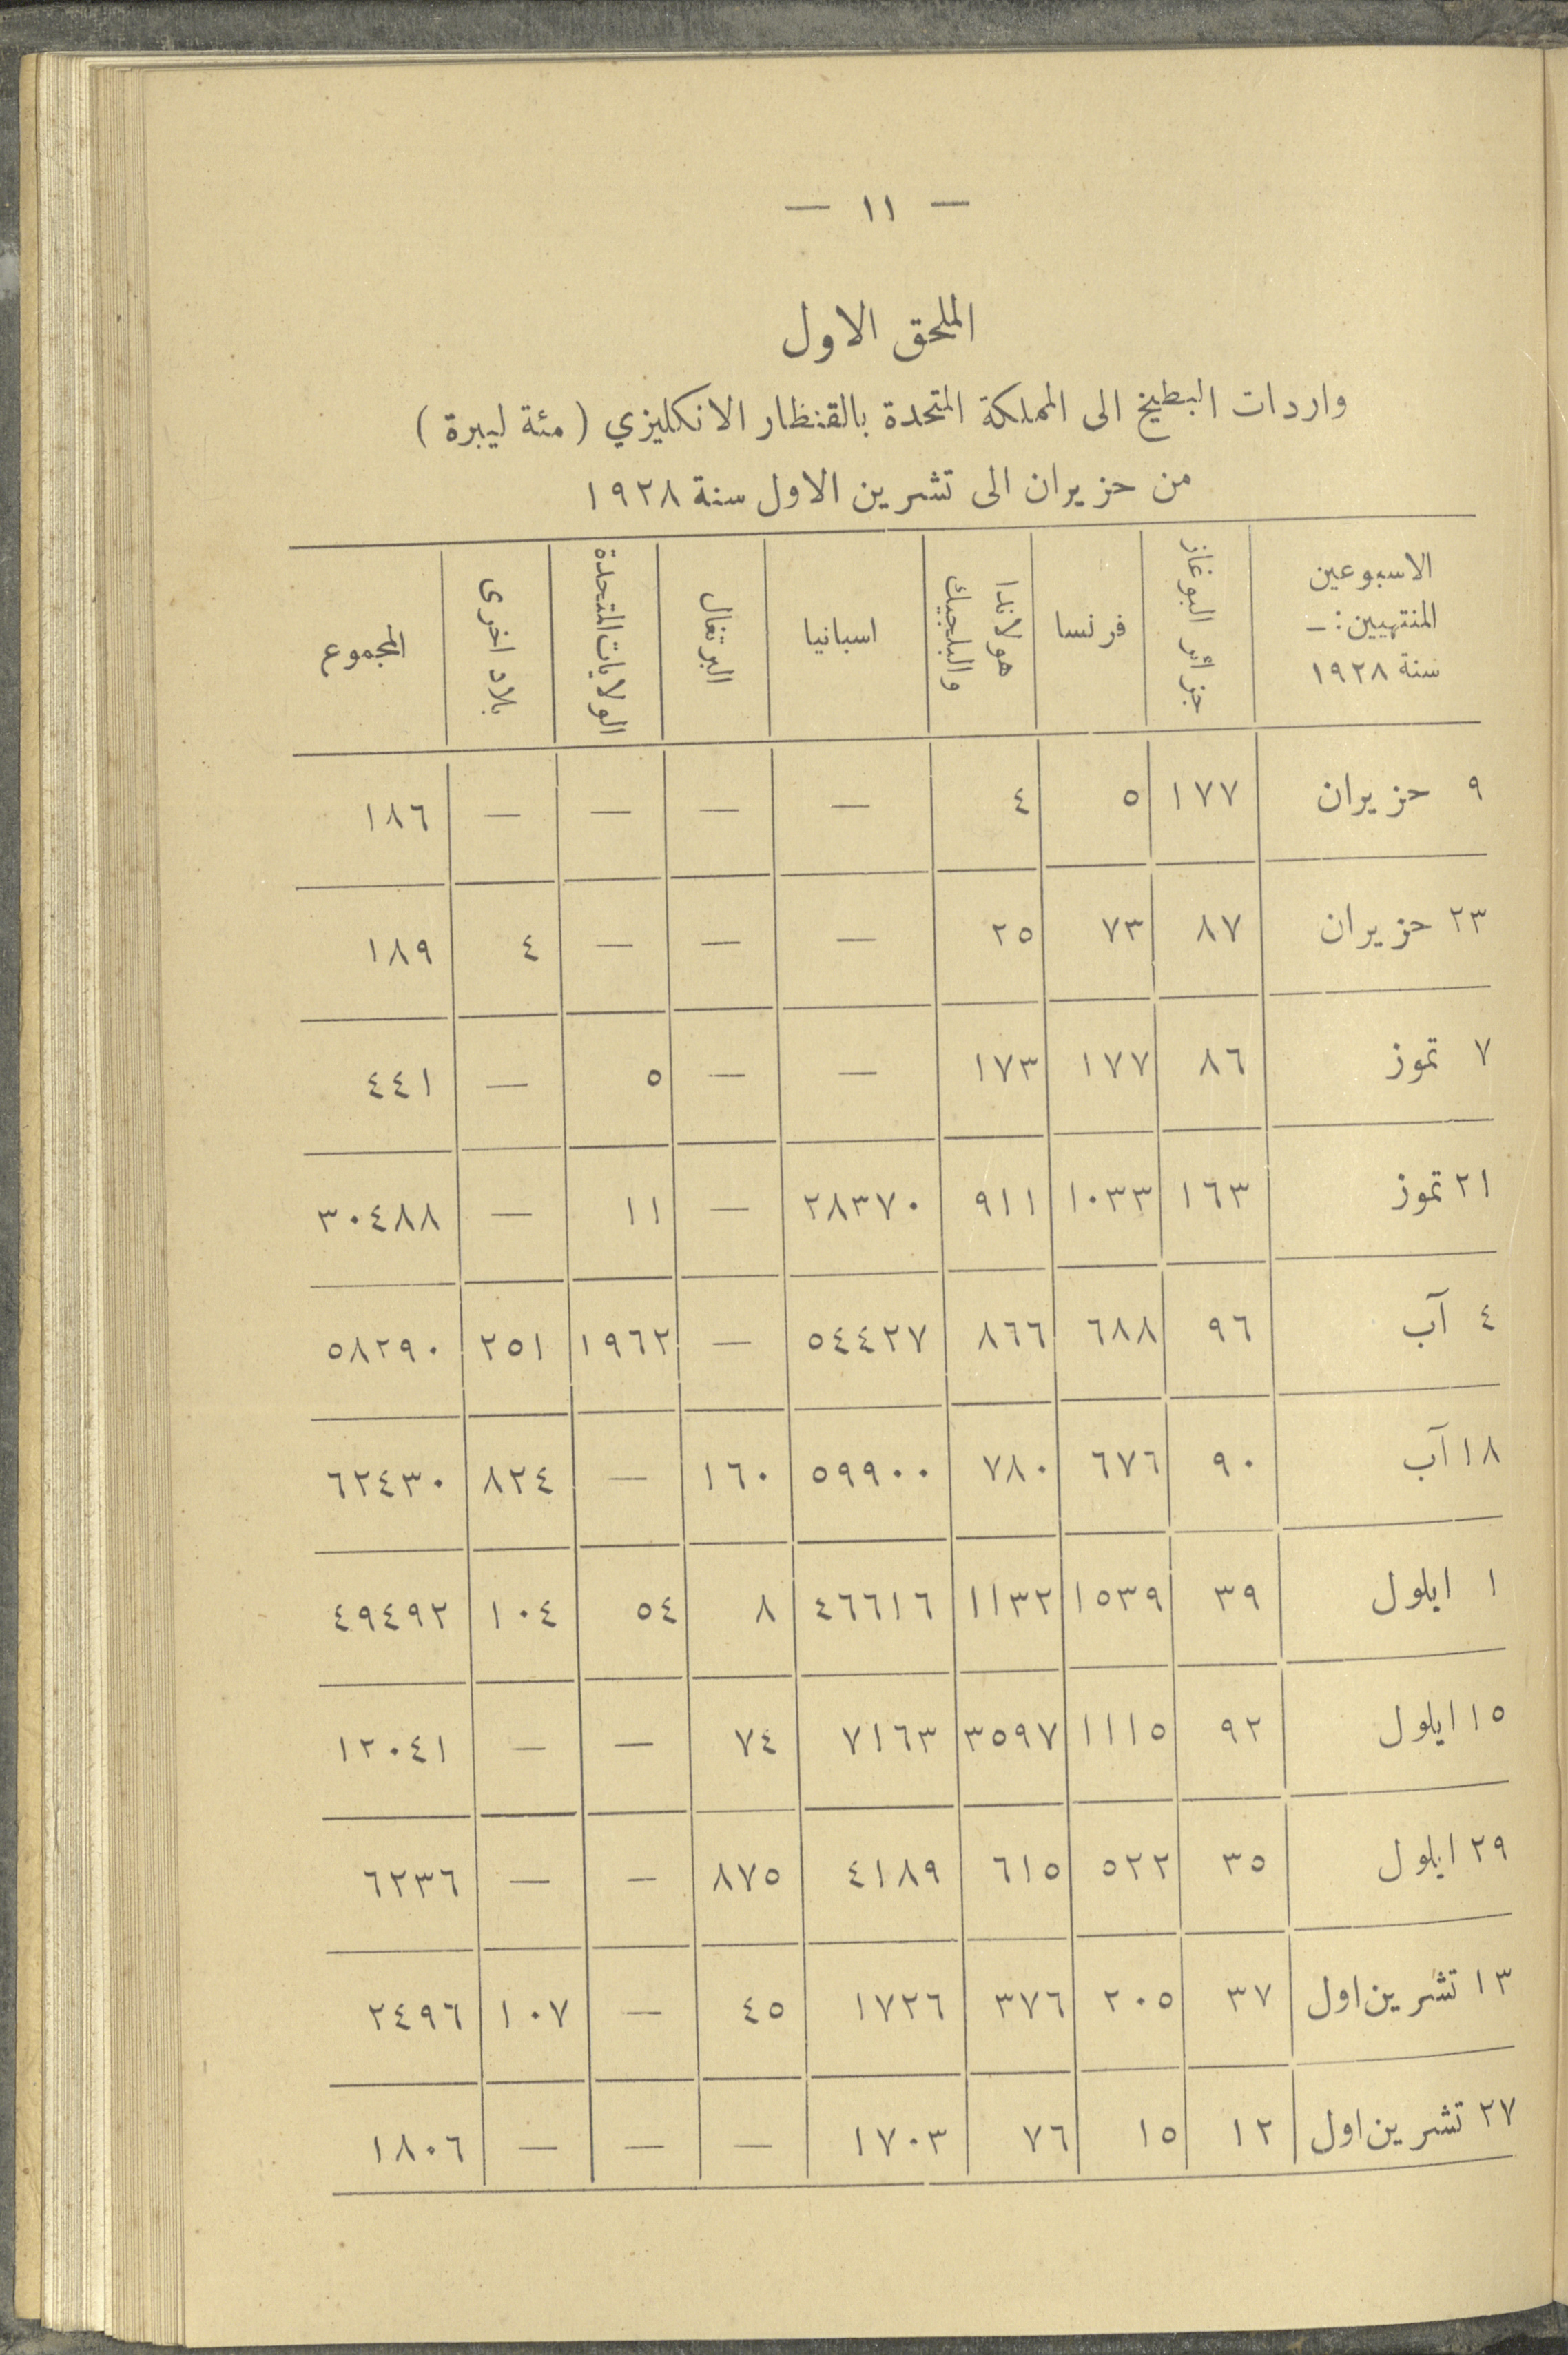 — ١١ —
الملحق الاول
واردات البطيخ الى المملكة المتحدة بالقنظار الانكليزي (مئة ليبرة)
من حزيران الى تشرين الاول سنة ١٩٢٨
الاسبوعين المنتهيين: ـ سنة ١٩٢٨ | جزائر البوغاز | فرنسا | هولاندا والبلجيك | اسبانيا | البرتغال | الولايات المتحدة | بلاد اخرى | المجموع
٩ حزيران | ١٧٧ | ٥ | ٤ | — | — | — | — | ١٨٦
٢٣ حزيران | ٨٧ | ٧٣ | ٢٥ | — | — | — | ٤ | ١٨٩
٧ تموز | ٨٦ | ١٧٧ | ١٧٣ | — | — | ٥ | — | ٤٤١
٢١ تموز | ١٦٣ | ١٠٣٣ | ٩١١ | ٢٨٣٧٠ | — | ١١ | — | ٣٠٤٨٨
٤ آب | ٩٦ | ٦٨٨ | ٨٦٦ | ٥٤٤٢٧ | — | ١٩٦٢ | ٢٥١ | ٥٨٢٩٠
١٨ آب | ٩٠ | ٦٧٦ | ٧٨٠ | ٥٩٩٠٠ | ١٦٠ | — | ٨٢٤ | ٦٢٤٣٠
١ ايلول | ٣٩ | ١٥٣٩ | ١١٣٢ | ٤٦٦١٦ | ٨ | ٥٤ | ١٠٤ | ٤٩٤٩٢
١٥ ايلول | ٩٢ | ١١١٥ | ٣٥٩٧ | ٧١٦٣ | ٧٤ | — | — | ١٢٠٤١
٢٩ ايلول | ٣٥ | ٥٢٢ | ٦١٥ | ٤١٨٩ | ٨٧٥ | — | — | ٦٢٣٦
١٣ تشرين اول | ٣٧ | ٢٠٥ | ٣٧٦ | ١٧٢٦ | ٤٥ | — | ١٠٧ | ٢٤٩٦
٢٧ تشرين اول | ١٢ | ١٥ | ٧٦ | ١٧٠٣ | — | — | — | ١٨٠٦